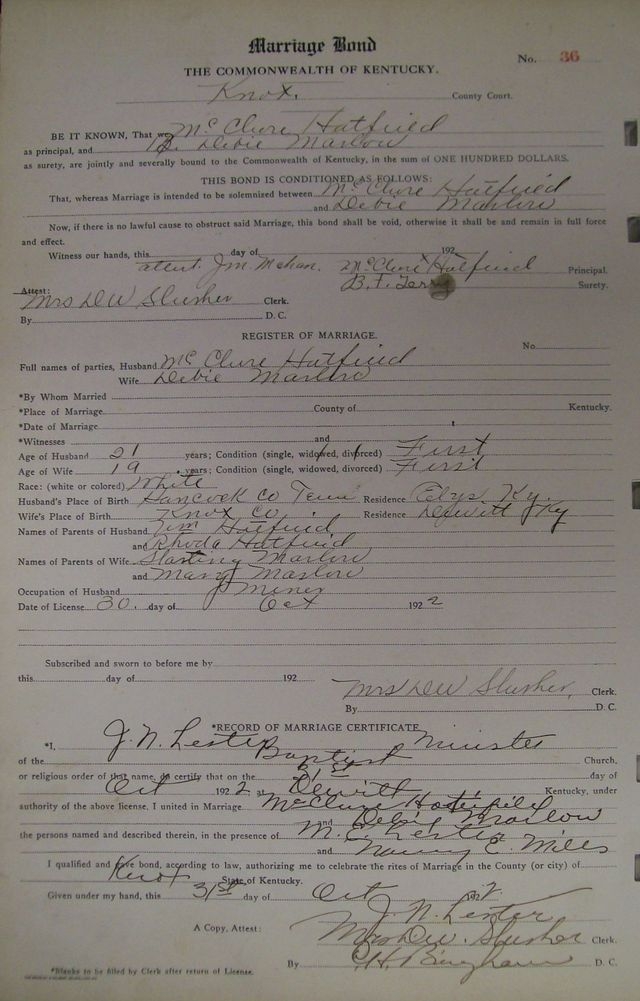 Marriage Bond
No. 36
THE COMMONWEALTH OF KENTUCKY.
Knox. County Court.
BE IT KNOWN, That we, McClure Hatfield
as principal, and Debie Marlow
as surety, are jointly and severally bound to the Commonwealth of Kentucky, in the sum of ONE HUNDRED DOLLARS.
THIS BOND IS CONDITIONED AS FOLLOWS:
That, whereas Marriage is intended to be solemnized between McClure Hatfield
and Debie Marlow
Now, if there is no lawful cause to obstruct said Marriage, this bond shall be void, otherwise it shall be and remain in full force
and effect.
Witness our hands, this day of 192
attest. J.M. McClure Hatfield Principal.
B. T. Terry Surety.
Attest:
Mrs DW Slusher Clerk.
By D. C.
REGISTER OF MARRIAGE.
No.
Full names of parties, Husband McClure Hatfield
Wife Debie Marlow
*By Whom Married
*Place of Marriage County of Kentucky.
*Date of Marriage
*Witnesses and
Age of Husband 21 years; Condition (single, widowed, divorced) First
Age of Wife 19 years; Condition (single, widowed, divorced) First
Race: (white or colored) White
Husband's Place of Birth Hancock Co Tenn Residence Ky.
Wife's Place of Birth Knox Co. Residence Dewitt Ky
Names of Parents of Husband Hatfield
and Rhoda Hatfield
Names of Parents of Wife Marlow
and Mary Marlow
Occupation of Husband Miner
Date of License 30. day of Oct 1922
Subscribed and sworn to before me by
this day of 192
Mrs DW Slusher, Clerk.
By D. C.
*RECORD OF MARRIAGE CERTIFICATE
*I, J. N. Lester Minister
of the Baptist Church,
or religious order of that name, do certify that on the 31st day of
Oct 1922 at Dewitt Kentucky, under
authority of the above license, I united in Marriage McClure Hatfield
and Debie Marlow
the persons named and described therein, in the presence of M. E. Lester
and Nancy E. Mills
I qualified and gave bond, according to law, authorizing me to celebrate the rites of Marriage in the County (or city) of
Knox State of Kentucky.
Given under my hand, this 31st day of Oct 192 2
J. N. Lester
A Copy, Attest: Mrs DW. Slusher Clerk.
By C H. Bingham D. C.
*Blanks to be filled by Clerk after return of License.